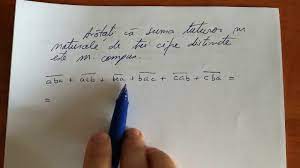 Arătați că suma tuturor nr
naturale de trei cifre distincte
este nr. compus.
abc + acb + bca + bac + cab + cba =
=